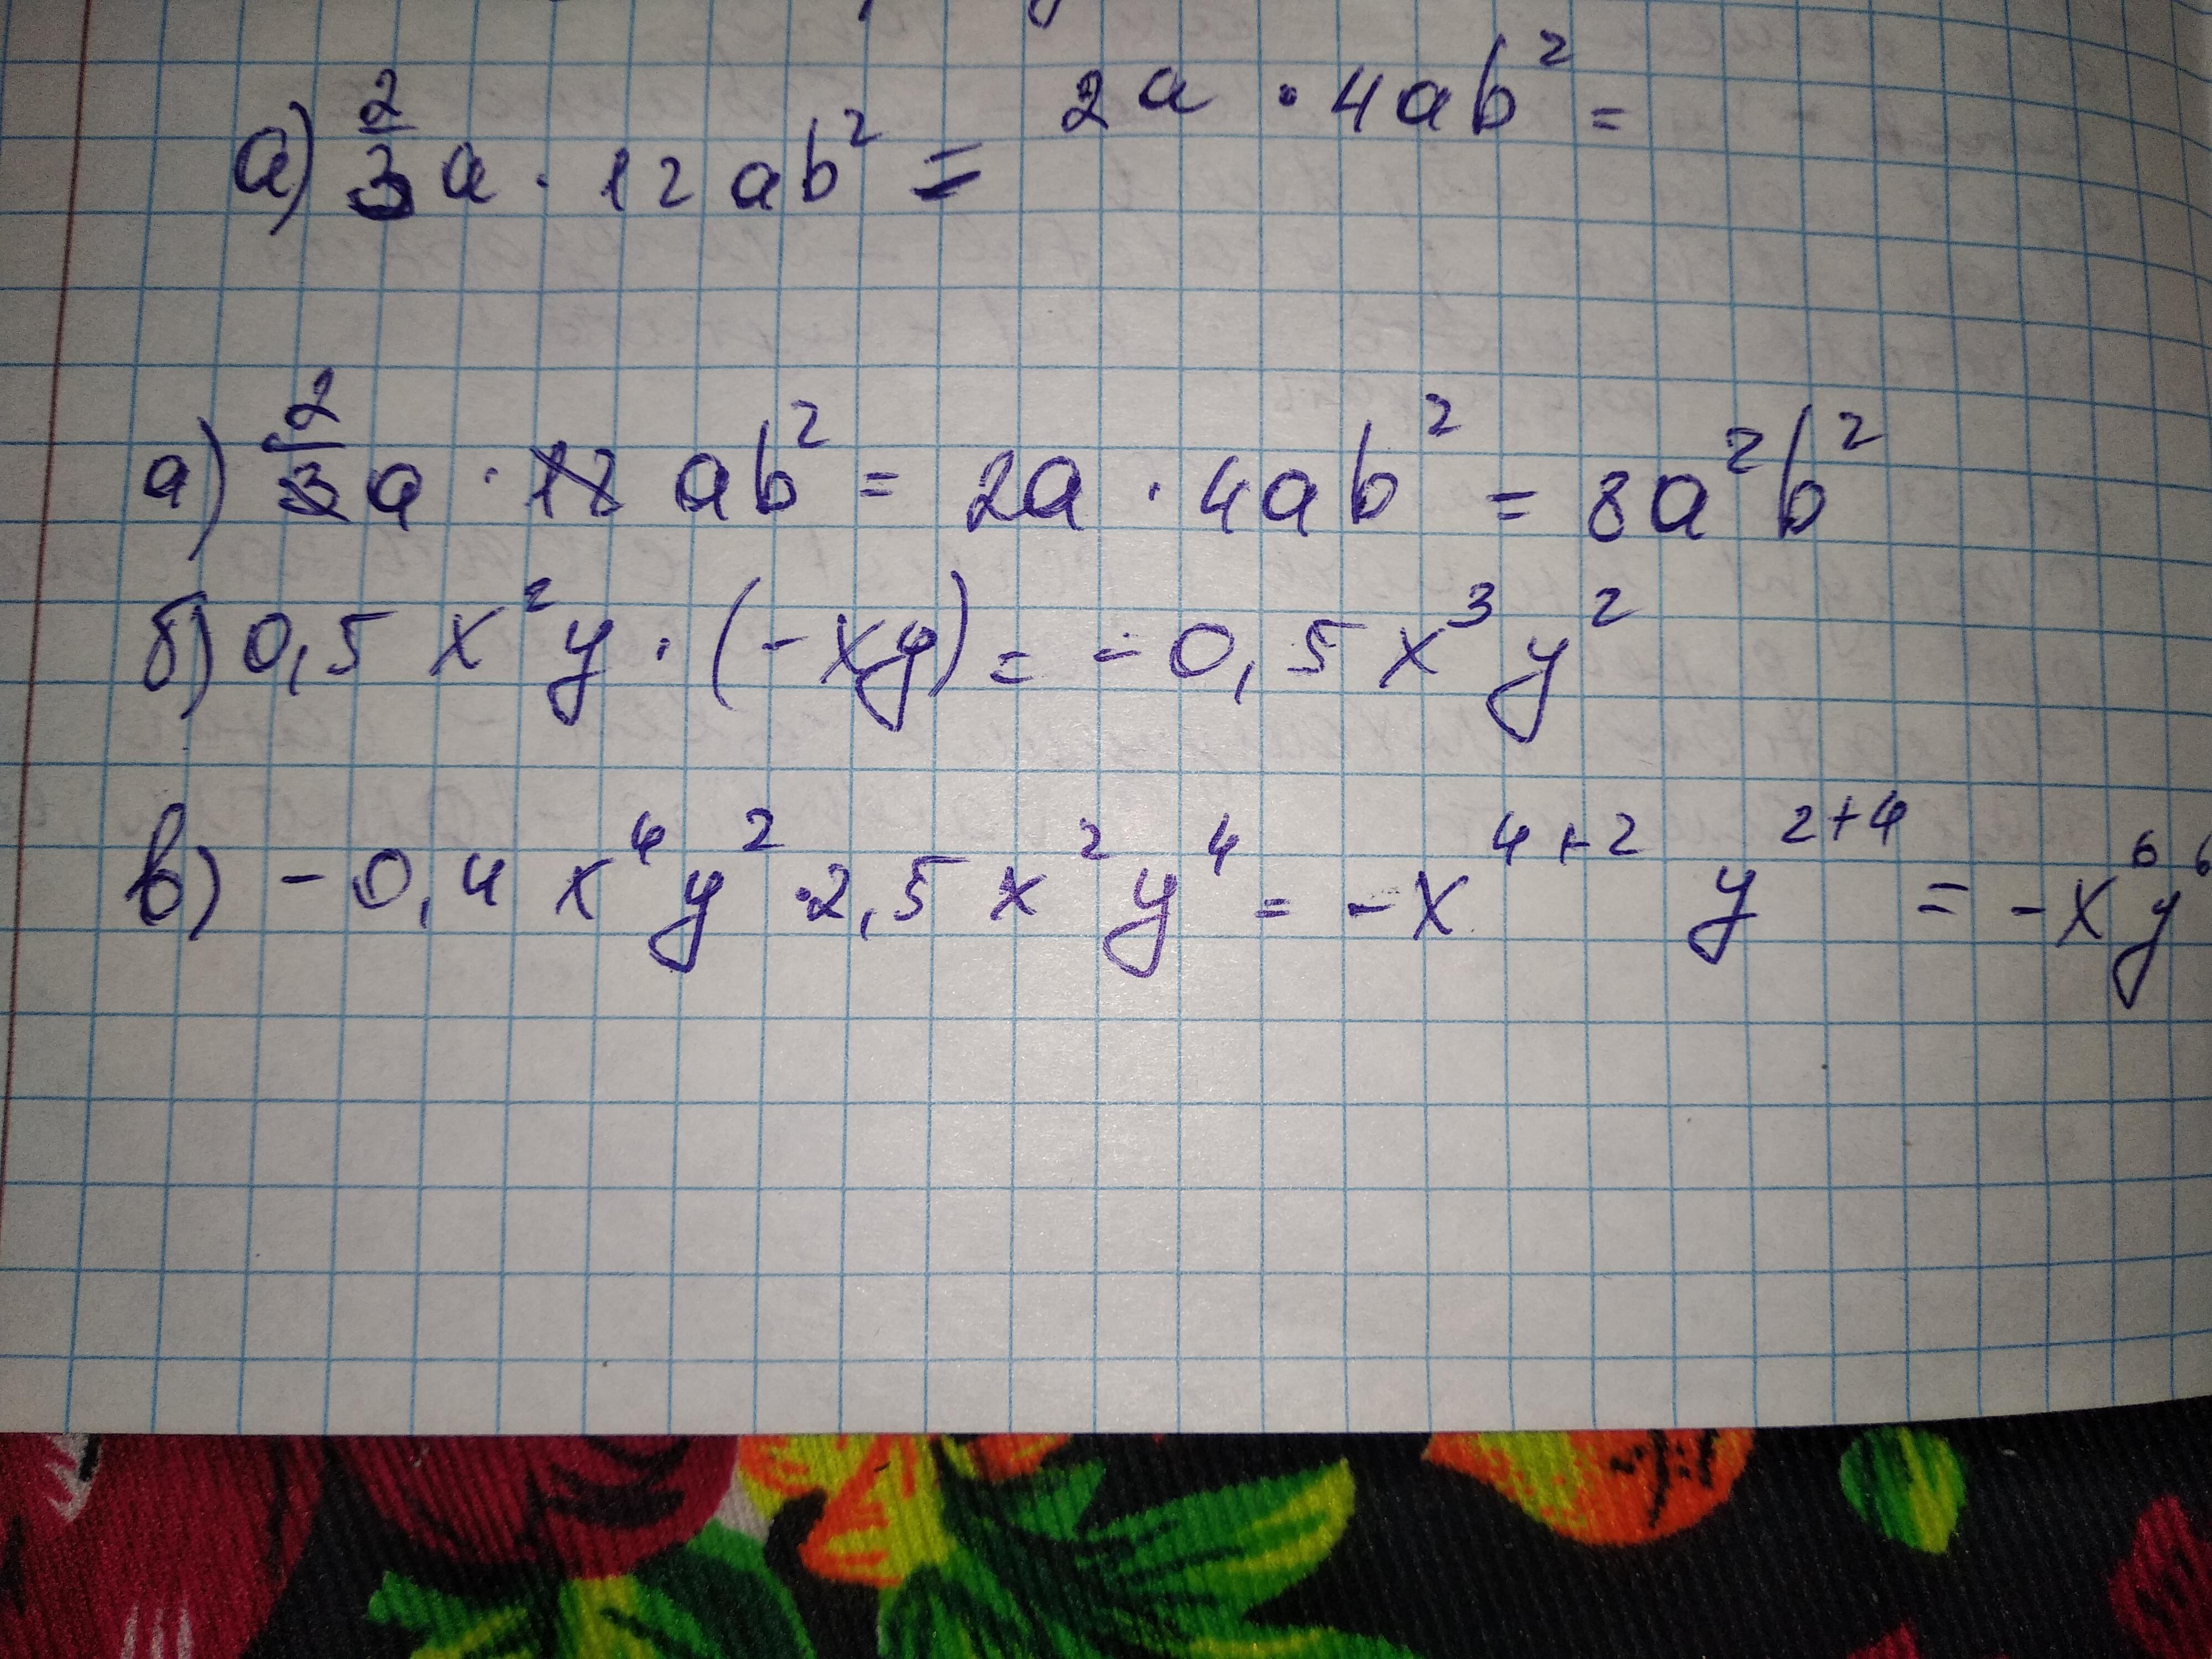 а) 2/3 a · 12 ab² = 2a · 4ab² =
а) 2/3 a · 12 ab² = 2a · 4ab² = 8a²b²
б) 0,5 x²y · (-xy) = -0,5x³y²
в) -0,4 x⁴y² · 2,5 x²y⁴ = -x⁴⁺² y²⁺⁴ = -x⁶y⁶